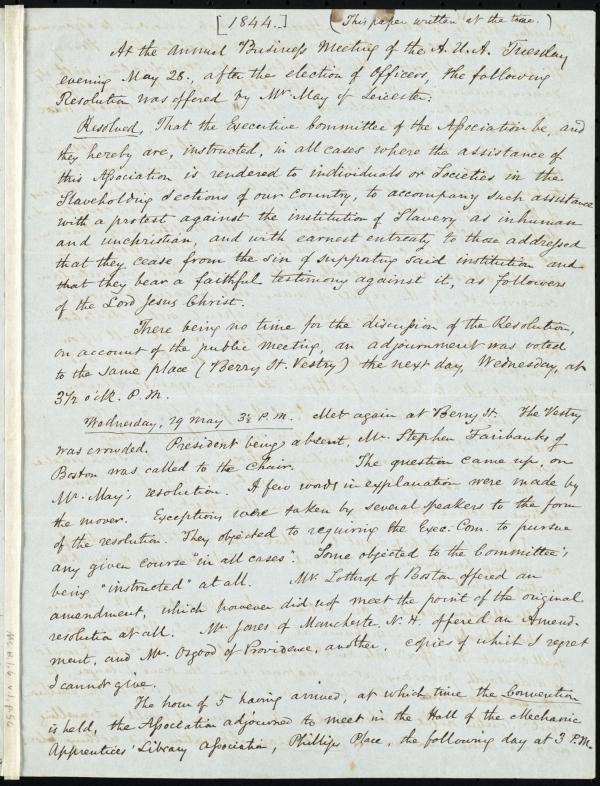 [1844.] (This paper written at the time.)
At the Annual Business Meeting of the A.U.A. Tuesday
evening May 28., after the election of Officers, the following
Resolution was offered by Mr. May of Leicester:
Resolved, That the Executive Committee of the Association be, and
they hereby are, instructed, in all cases where the assistance of
this Association is rendered to individuals or Societies in the
Slaveholding sections of our Country, to accompany such assistance
with a protest against the institution of Slavery as inhuman
and unchristian, and with earnest entreaty to those addressed
that they cease from the sin of supporting said institution and
that they bear a faithful testimony against it, as followers
of the Lord Jesus Christ.
There being no time for the discussion of the Resolution,
on account of the public meeting, an adjournment was voted
to the same place (Berry St. Vestry) the next day, Wednesday, at
3½ o'clk. P.M.
Wednesday, 29 May 3½ P.M. Met again at Berry St. The Vestry
was crowded. President being absent, Mr. Stephen Fairbanks of
Boston was called to the Chair. The question came up, on
Mr. May's resolution. A few words in explanation were made by
the mover. Exceptions were taken by several speakers to the form
of the resolution. They objected to requiring the Exec. Com. to pursue
any given course "in all cases". Some objected to the Committee's
being "instructed" at all. Mr. Lothrop of Boston offered an
amendment, which however did not meet the point of the original
resolution at all. Mr. Jones of Manchester, N.H. offered an Amend-
ment, and Mr. Osgood of Providence, another, copies of which I regret
I cannot give.
The hour of 5 having arrived, at which time the Convention
is held, the Association adjourned to meet in the Hall of the Mechanic
Apprentices' Library Association, Phillips Place, the following day at 3 P.M.